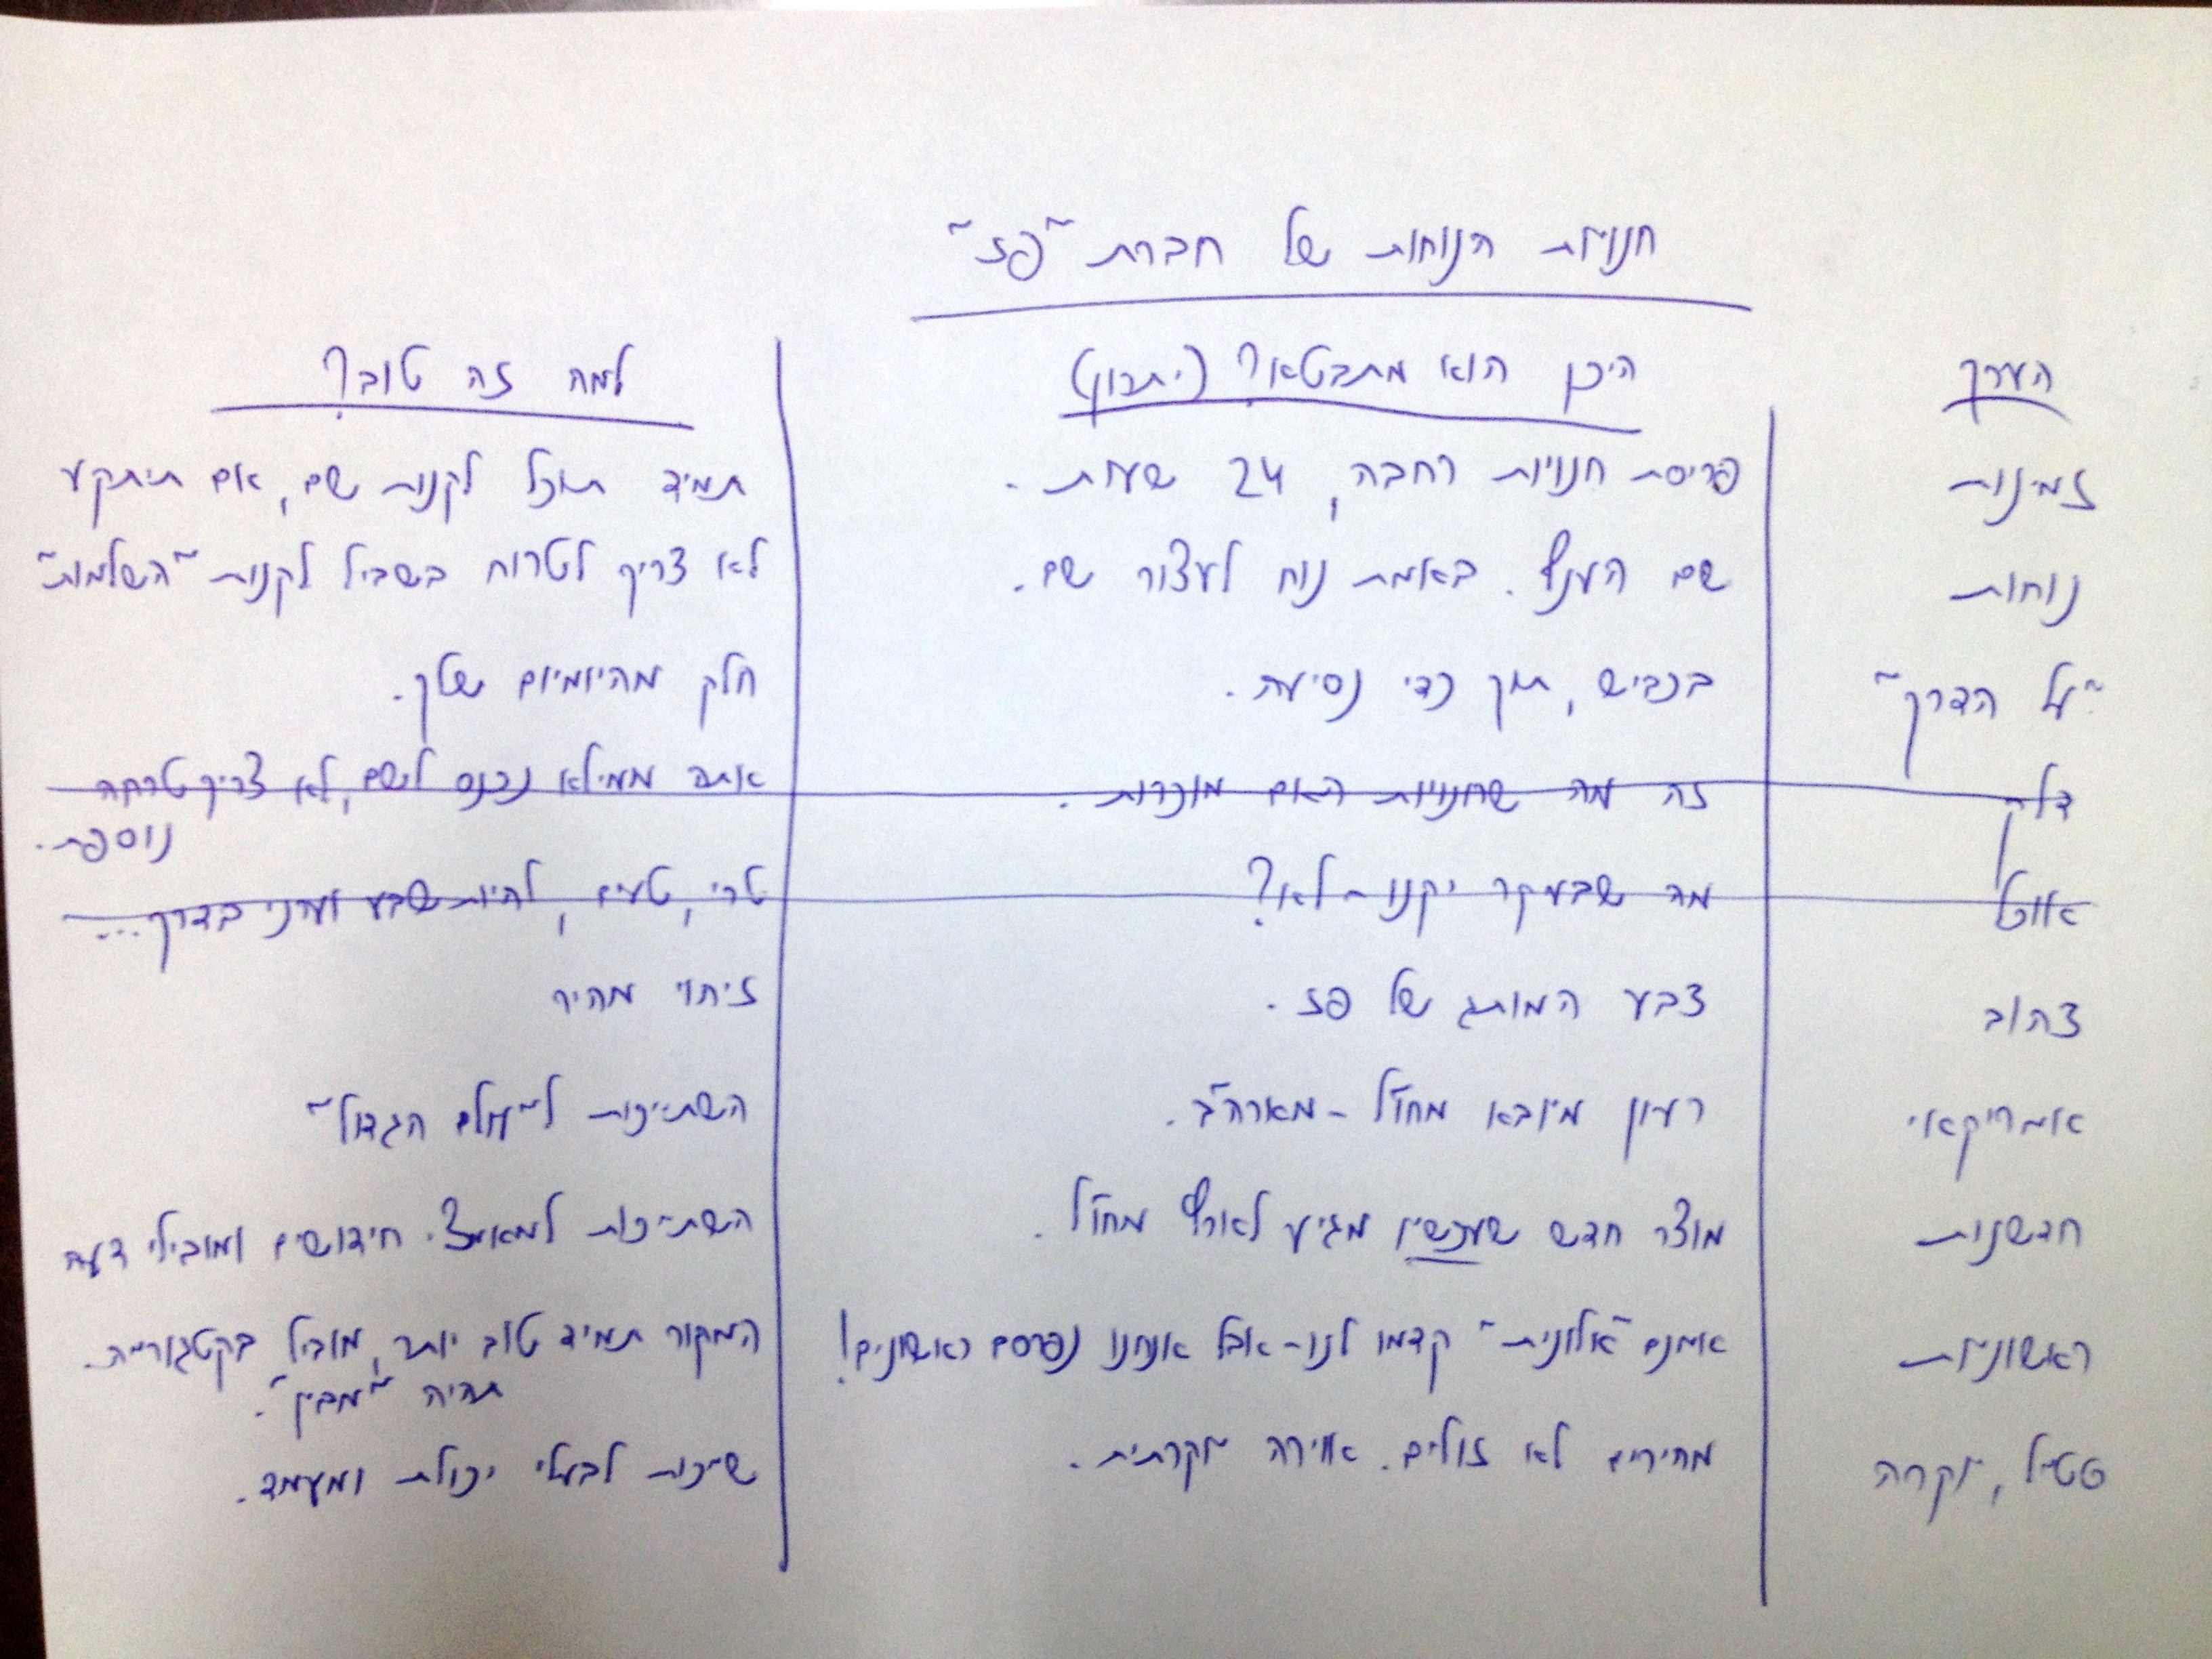 חנויות הנוחות של חברת "פז"
הערך היכן הוא מתבטא? (יתרון) למה זה טוב?
זמינות פריסת חנויות רחבה, 24 שעות. תמיד תוכל לקנות שם, אם תיתקע
נוחות שם הענף. באמת נוח לעצור שם. לא צריך לטרוח בשביל לקנות "השלמות"
"על הדרך" בכביש, תוך כדי נסיעה. חלק מהיומיום שלך.
דלק זה מה שחנויות האם מוכרות. אתה ממילא נכנס לשם, לא צריך טרחה
נוספת.
אוכל מה שבעקר יקנו - לא? טרי, טעים, להיות שבע וערני בדרך...
צהוב צבע המותג של פז. זיהוי מהיר
אמריקאי רעיון מיובא מחו"ל - מארה"ב. השתייכות ל"עולם הגדול"
חדשנות מוצר חדש שעכשיו מגיע לארץ מחו"ל. השתייכות למאמצי חידושים ומובילי דעה
ראשוניות אמנם "אלונית" קדמו לנו - אבל אנחנו נפרסם ראשונים! המקור תמיד טוב יותר, מוביל בקטגוריה.
תהיה "מבין".
סטייל, יוקרה מחירים לא זולים. אווירה יוקרתית. שייכות לבעלי יכולת ומעמד.